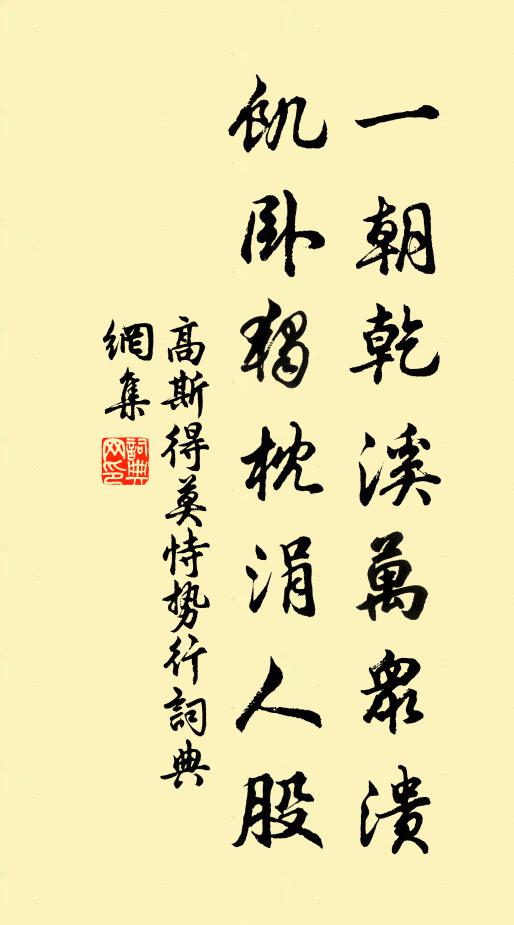 一朝乾溪萬衆潰
飢卧獨枕涓人股
高斯得莫恃勢行詞典
網集
詞典網印